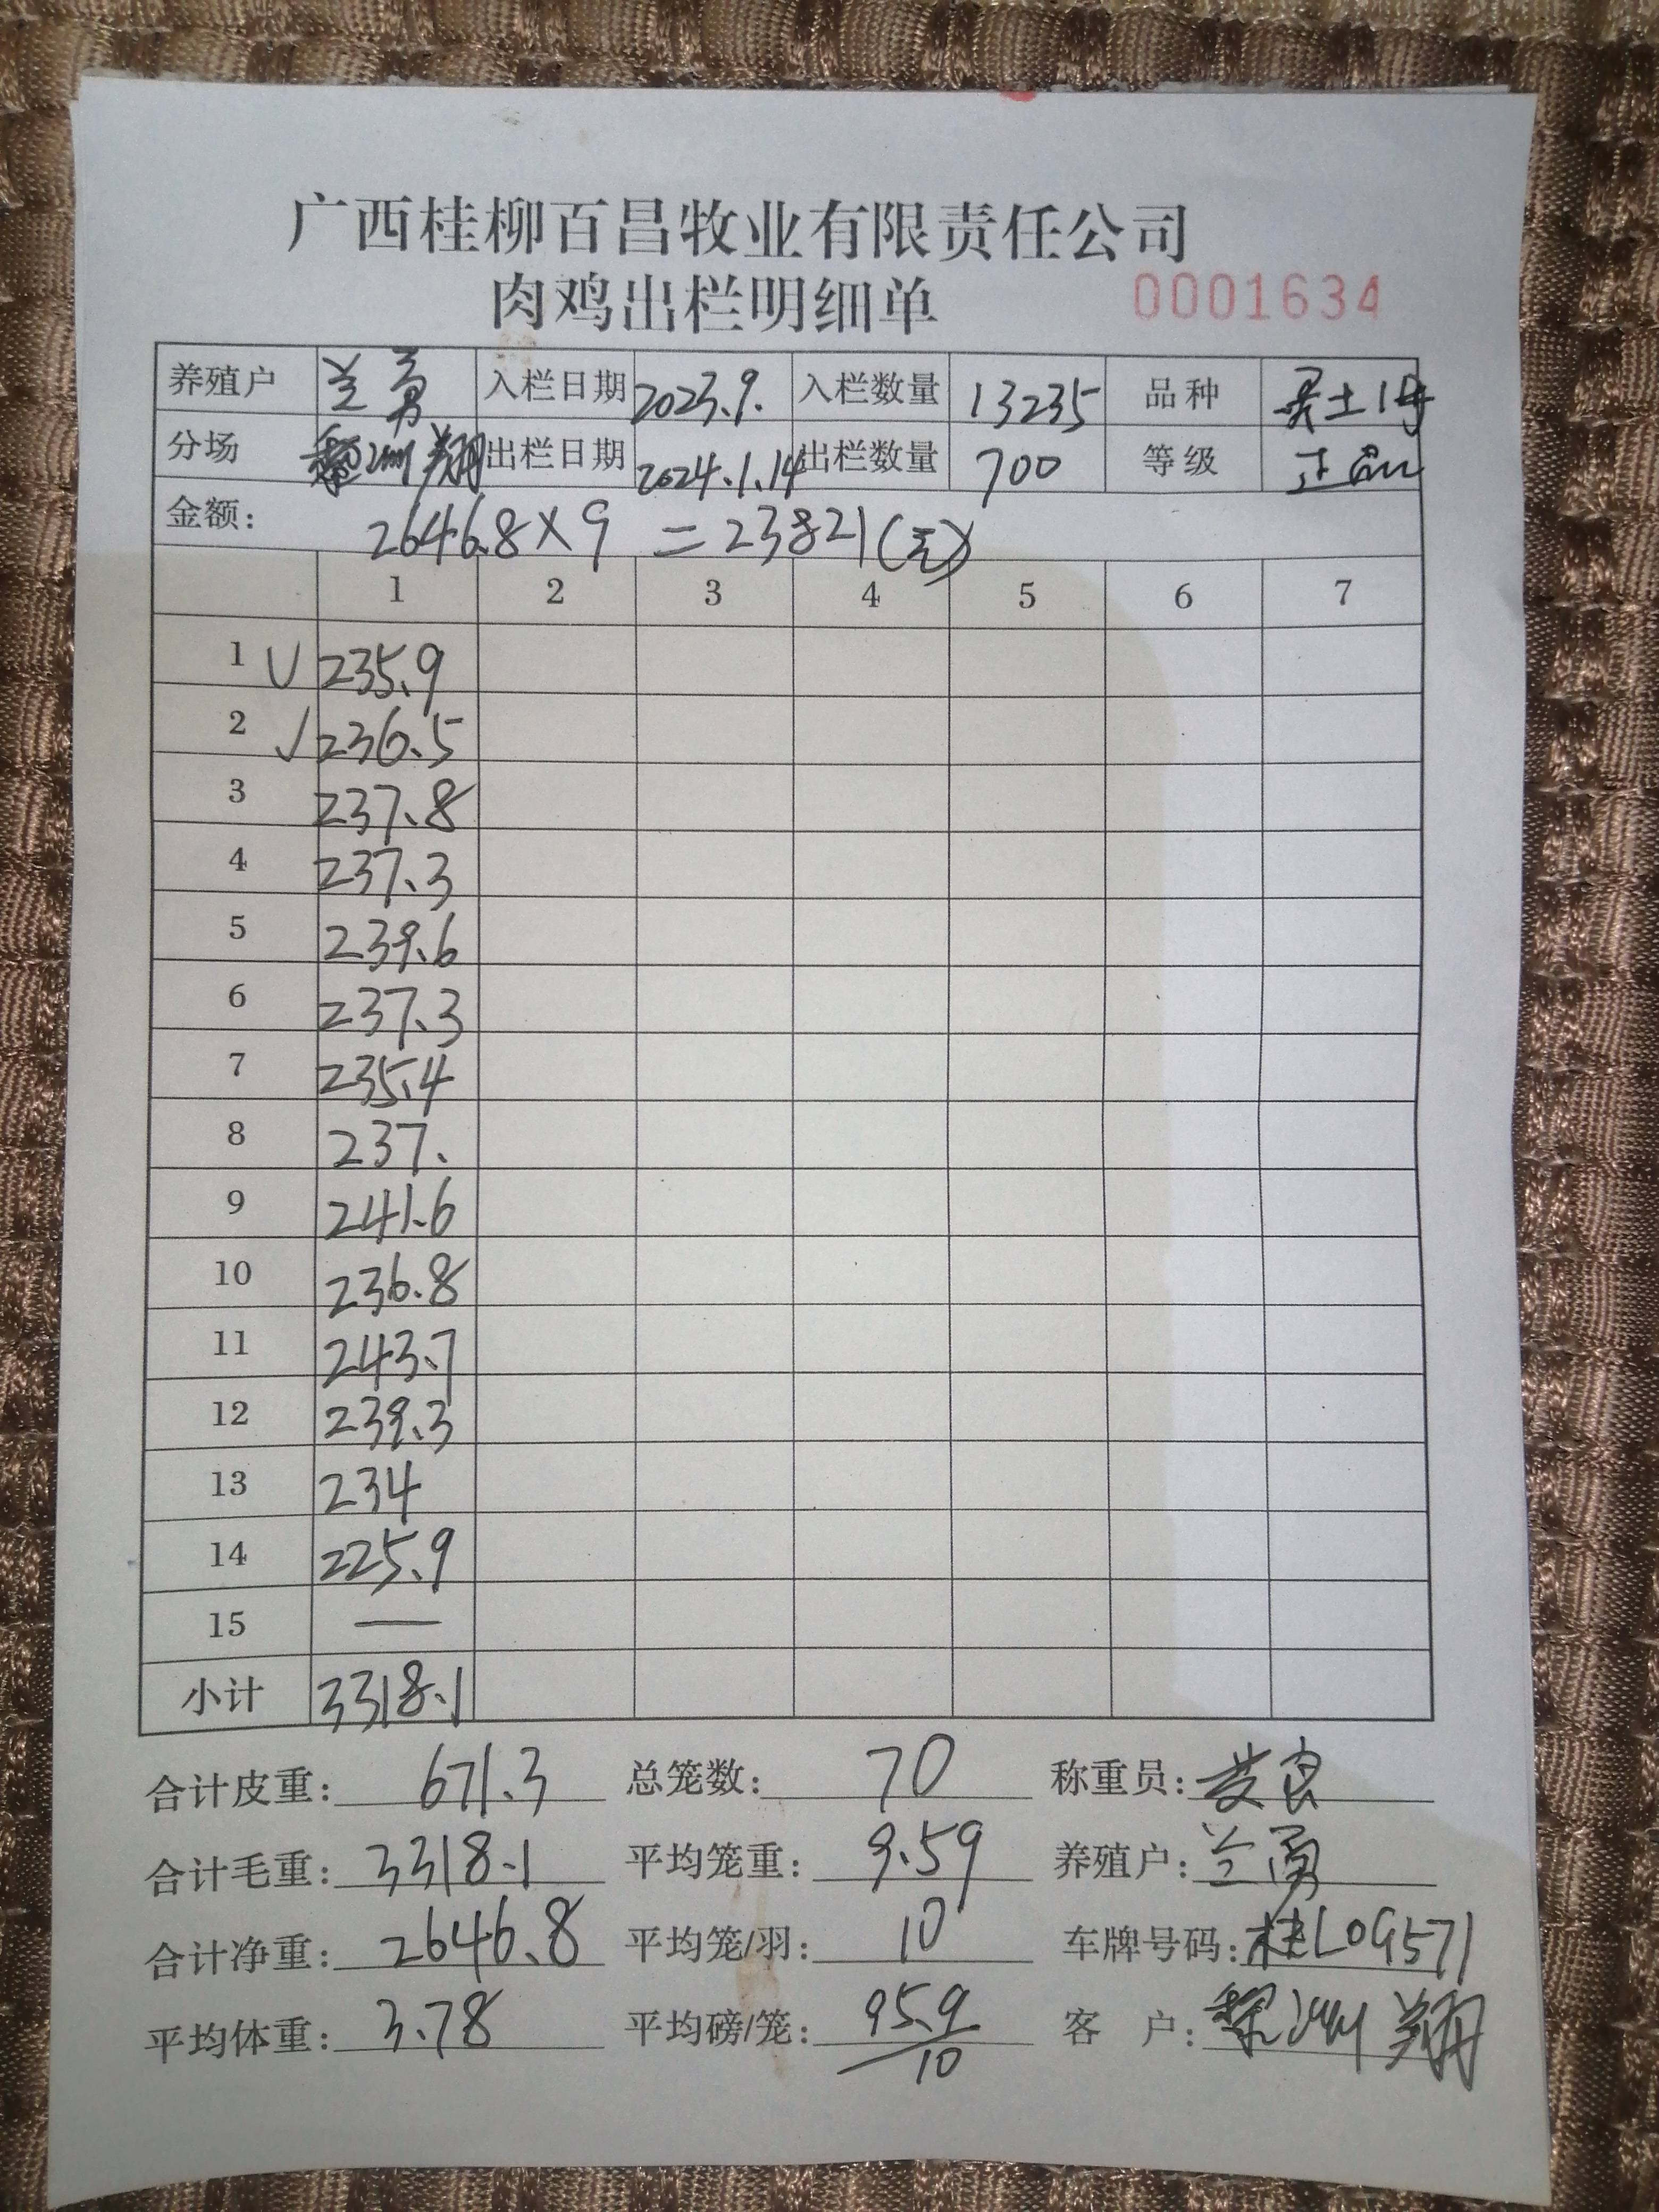 广西桂柳百昌牧业有限责任公司
肉鸡出栏明细单 0001634
养殖户 兰勇 入栏日期 2023.9. 入栏数量 13235 品种 土1号
分场 黎洲翔 出栏日期 2024.1.14 出栏数量 700 等级 正品
金额: 2646.8×9=23821(元)
1 2 3 4 5 6 7
1 √ 235.9
2 √ 236.5
3 237.8
4 237.3
5 239.6
6 237.3
7 235.4
8 237.
9 241.6
10 236.8
11 243.7
12 239.3
13 234
14 225.9
15 —
小计 3318.1
合计皮重: 671.3 总笼数: 70 称重员:
合计毛重: 3318.1 平均笼重: 9.59 养殖户: 兰勇
合计净重: 2646.8 平均笼/羽: 10 车牌号码: 桂L09571
平均体重: 3.78 平均磅/笼: 95.9/10 客 户: 黎洲翔